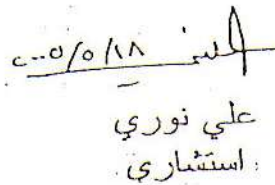 ٢٠٠٥/٥/١٨
علي نوري
استشاري